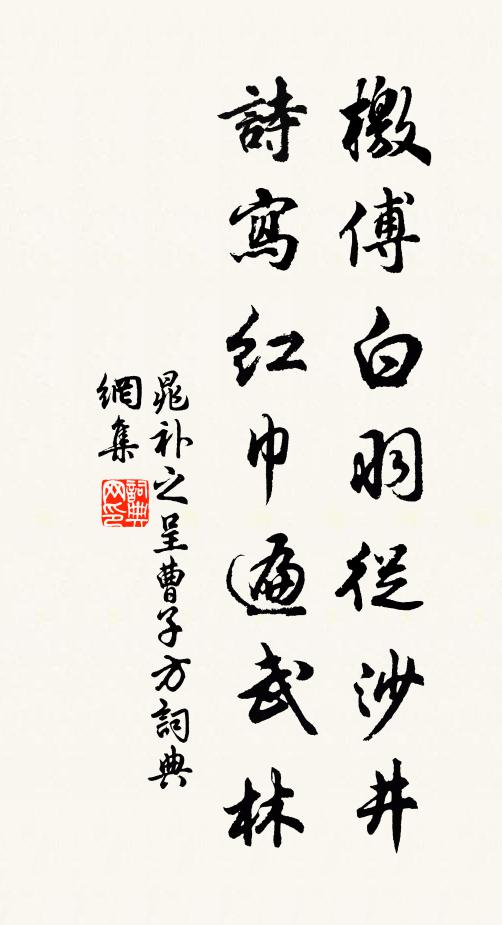 檄傅白羽從沙井
詩寫紅巾遍武林
晁补之呈曹子方詞典
網集
詞典
网印